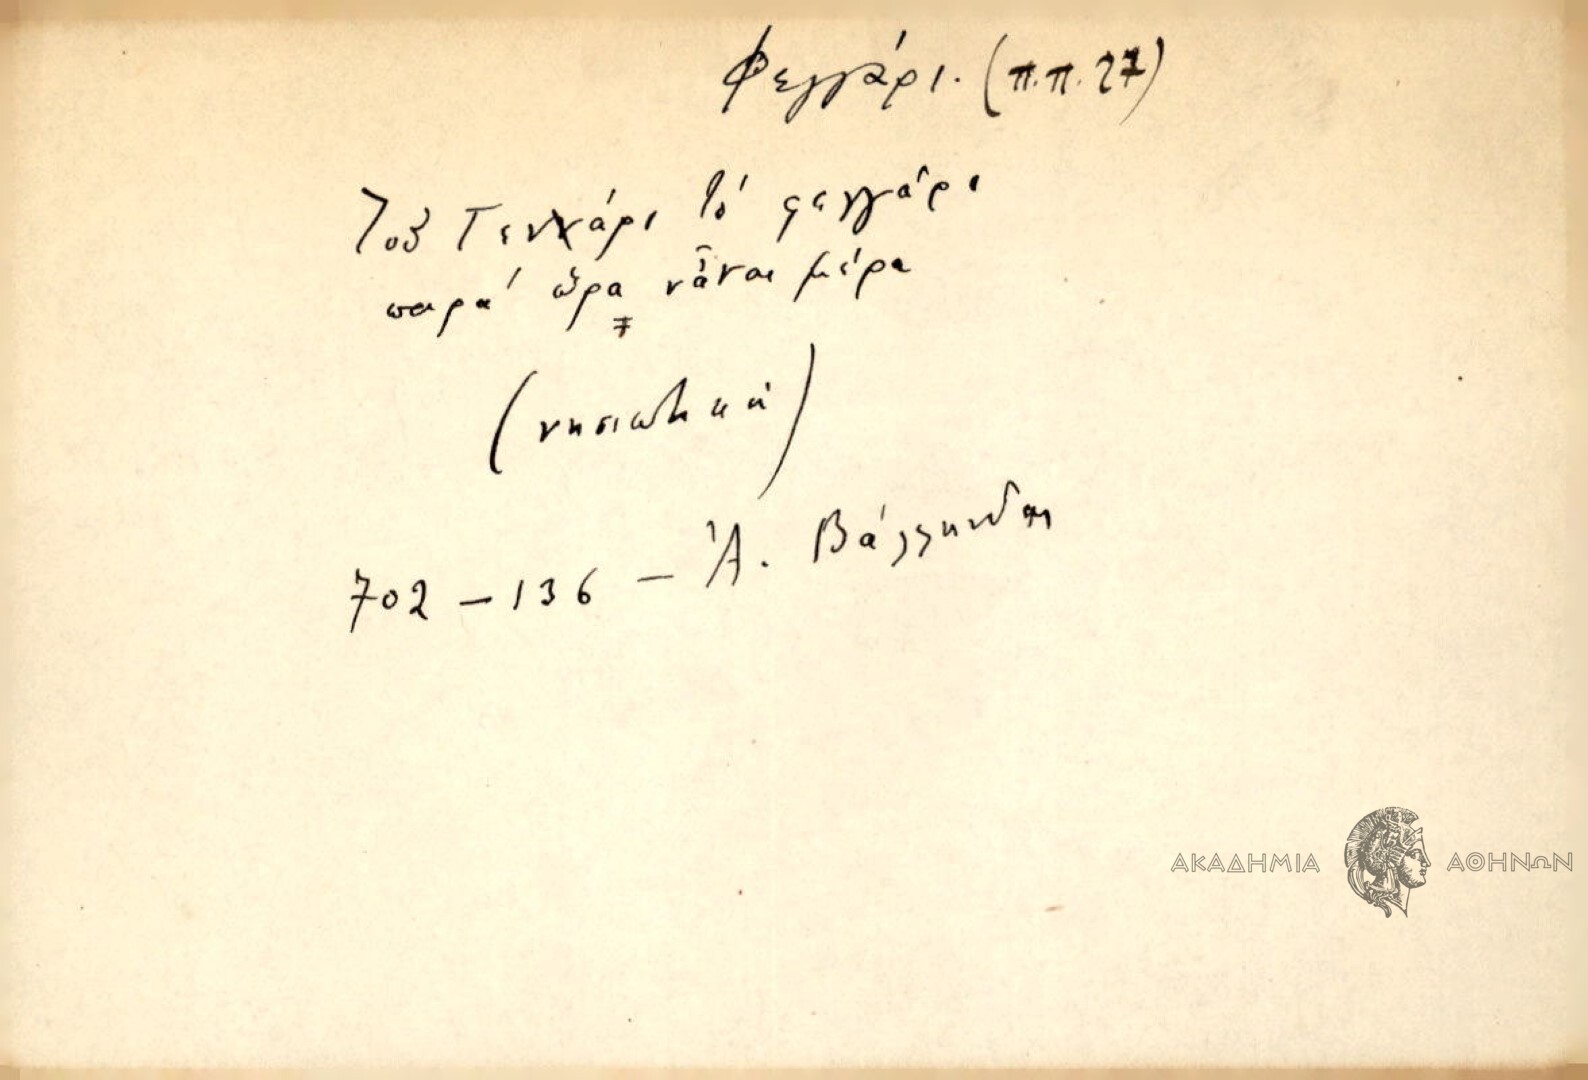 Φεγγάρι. (π.π. 27)
Τοῦ Γεννάρι τό φεγγάρι
παρά ὥρα νἆναι μέρα
(νησιωτικά)
702 – 136 – Ἀ. Βάλληνδας
ΑΚΑΔΗΜΙΑ ΑΘΗΝΩΝ